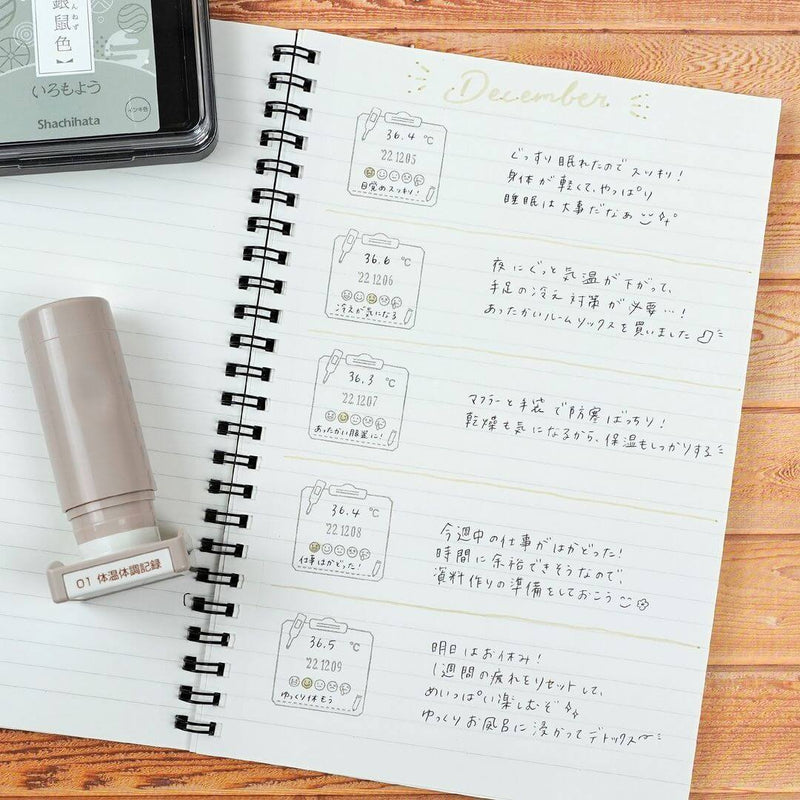 銀鼠色
いろもよう
インキ色
Shachihata
01 体温体調記録
December
36.4 ℃
'22 12 05
目覚めスッキリ!
ぐっすり眠れたのでスッキリ!
身体が軽くて、やっぱり
睡眠は大事だなぁ
36.6 ℃
'22 12 06
冷えが気になる
夜にぐっと気温が下がって、
手足の冷え対策が必要…!
あったかいルームソックスを買いました
36.3 ℃
'22 12 07
あったかい服装に!
マフラーと手袋で防寒ばっちり!
乾燥も気になるから、保湿もしっかりする
36.4 ℃
'22 12 08
仕事はかどった!
今週中の仕事がはかどった!
時間に余裕できそうなので、
資料作りの準備をしておこう
36.5 ℃
'22 12 09
ゆっくり休もう
明日はお休み!
1週間の疲れをリセットして、
めいっぱい楽しむぞ
ゆっくりお風呂に浸かってデトックス